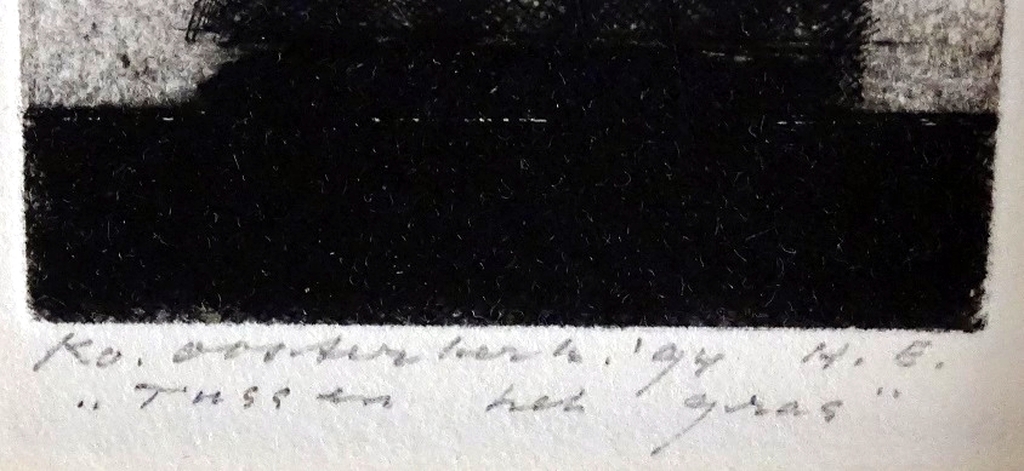 Ko. oosterkerk. '94 H. E.
„Tussen het gras"